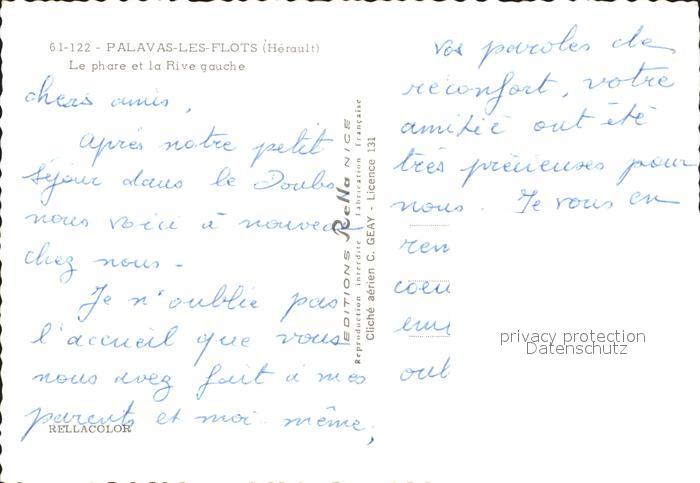 61-122 - PALAVAS-LES-FLOTS (Hérault)
Le phare et la Rive gauche
chers amis,
Après notre petit
séjour dans le Doubs
nous voici à nouveau
chez nous -
Je n'oublie pas
l'accueil que vous
nous avez fait à mes
parents et moi même,
RELLACOLOR
EDITIONS Rella NICE
Reproduction interdite fabrication française
Cliché aérien C. GEAY - Licence 131
vos paroles de
réconfort, votre
amitié ont été
très précieuses pour
nous. Je vous en
ren
coeu
oub
privacy protection
Datenschutz